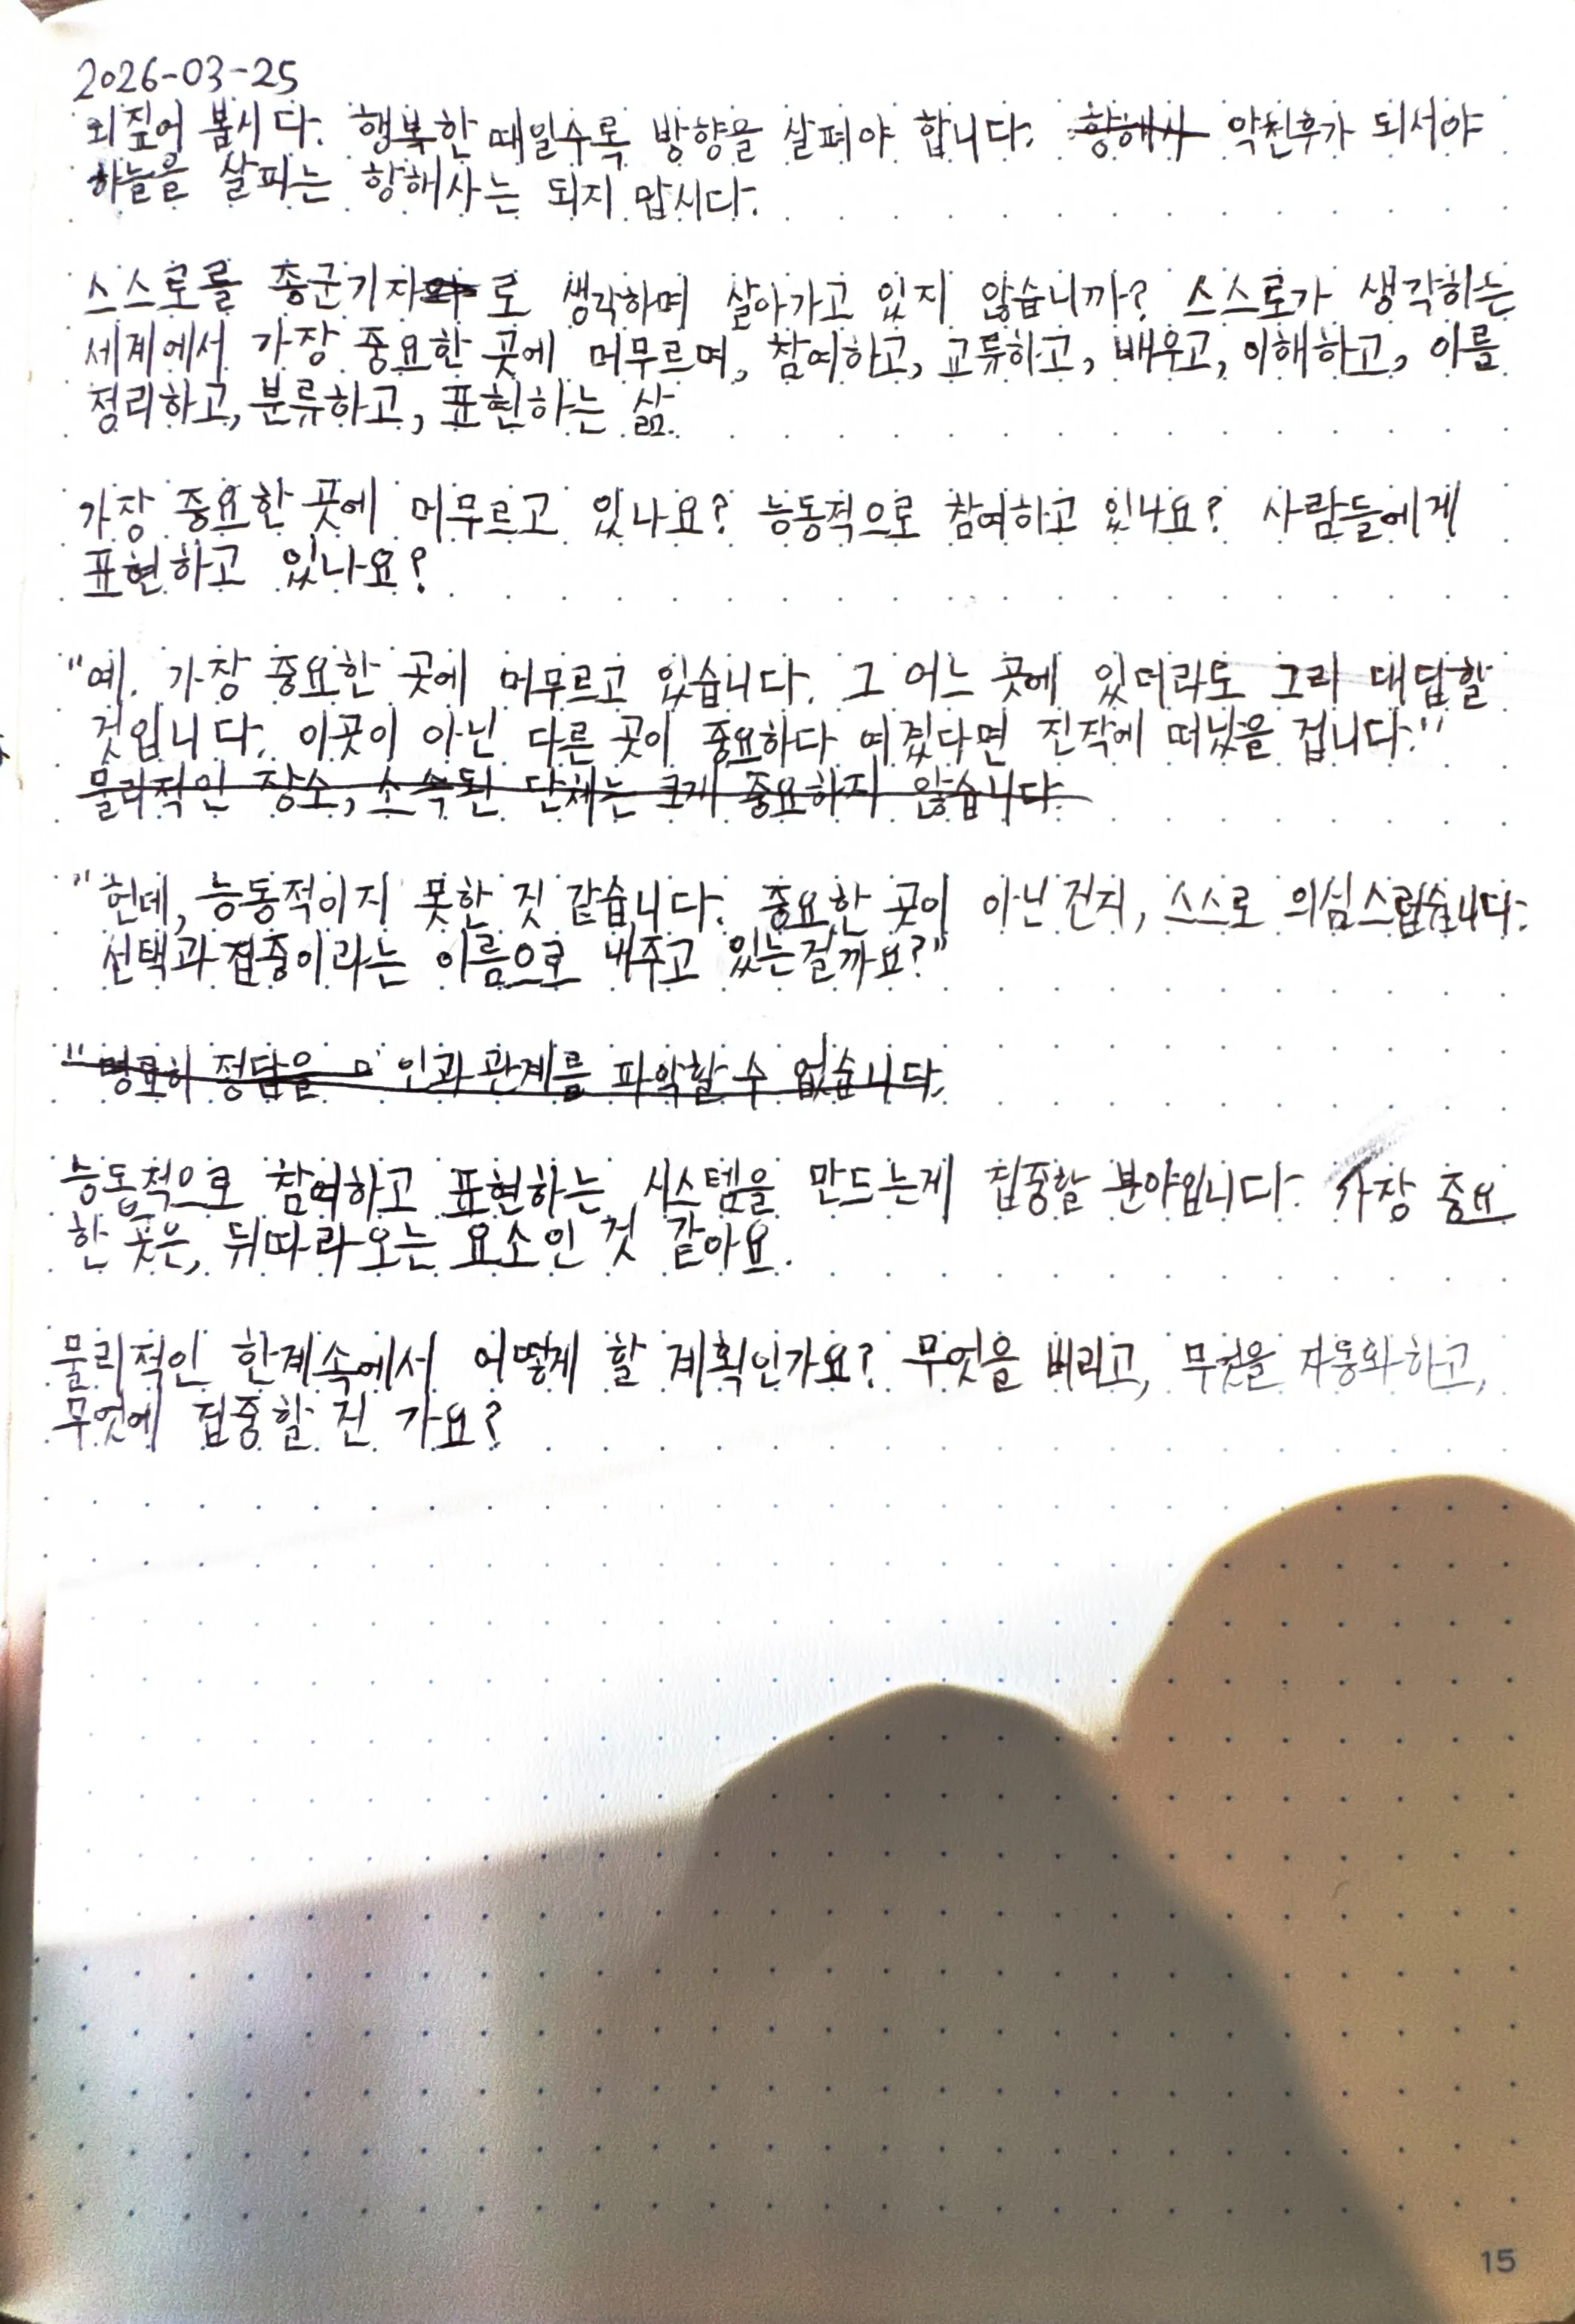 2026-03-25
되짚어 봅시다. 행복한 때일수록 방향을 살펴야 합니다. 항해사 악천후가 되서야
하늘을 살피는 항해사는 되지 맙시다.
스스로를 종군기자로 생각하며 살아가고 있지 않습니까? 스스로가 생각하는
세계에서 가장 중요한 곳에 머무르며, 참여하고, 교류하고, 배우고, 이해하고, 이를
정리하고, 분류하고, 표현하는 삶.
가장 중요한 곳에 머무르고 있나요? 능동적으로 참여하고 있나요? 사람들에게
표현하고 있나요?
"예. 가장 중요한 곳에 머무르고 있습니다. 그 어느 곳에 있더라도 그리 대답할
것입니다. 이곳이 아닌 다른 곳이 중요하다 여겼다면 진작에 떠났을 겁니다."
물리적인 장소, 소속된 단체는 크게 중요하지 않습니다
"헌데, 능동적이지 못한 것 같습니다. 중요한 곳이 아닌건지, 스스로 의심스럽습니다.
선택과 집중이라는 이름으로 내주고 있는걸까요?"
"명료히 정답을 ㅁ 인과관계를 파악할 수 없습니다.
능동적으로 참여하고 표현하는 시스템을 만드는게 집중할 분야입니다. 가장 중요
한 곳은, 뒤따라오는 요소인 것 같아요.
물리적인 한계속에서 어떻게 할 계획인가요? 무엇을 버리고, 무엇을 자동화하고,
무엇에 집중할 건가요?
15